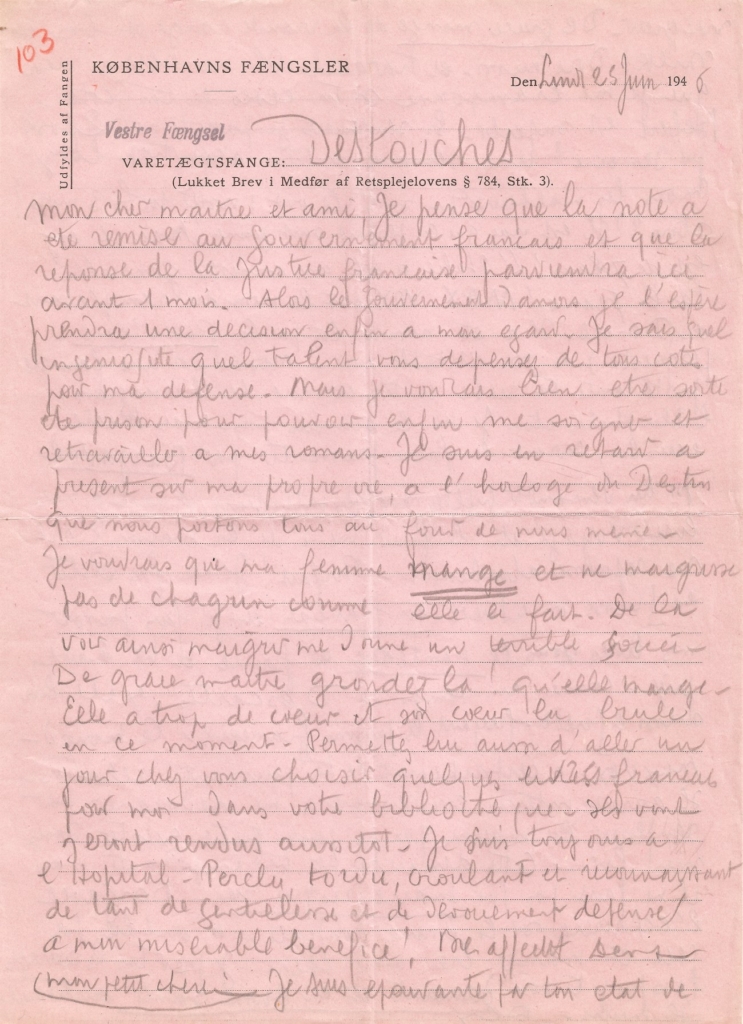 103
Udfyldes af Fangen
KØBENHAVNS FÆNGSLER
Den Lundi 25 Juin 1946
Vestre Fængsel
VARETÆGTSFANGE: Destouches
(Lukket Brev i Medfør af Retsplejelovens § 784, Stk. 3).
Mon cher maitre et ami, Je pense que la note a
ete remise au Gouvernement francais et que la
reponse de la Justice francaise parviendra ici
avant 1 mois. Alors le Gouvernement danois je l'espère
prendra une decision enfin a mon egard. Je sais quel
ingeniosite quel talent vous depensez de tous cotes
pour ma defense. Mais je voudrais bien etre sorti
de prison pour pouvoir enfin me soigner et
retravailler a mes romans. Je suis en retard a
present sur ma propre vie, a l'horloge du Destin
que nous portons tous au fond de nous meme -
Je voudrais que ma femme mange et ne maigrisse
pas de chagrin comme elle le fait. De la
voir ainsi maigrir me donne un terrible souci -
De grace maitre grondez la ! qu'elle mange -
Elle a trop de coeur et son coeur la brule
en ce moment - Permettez lui aussi d'aller un
jour chez vous choisir quelques livres francais
pour moi dans votre bibliothèque ils vont
seront rendus aussitot - Je suis toujours a
l'Hopital - Perclu, tordu, croulant et reconnaissant
de tant de gentillesse et de devouement defense
a mon miserable benefice ! Bien affectt
(mon petit cheri Je suis epouvanté par ton etat de